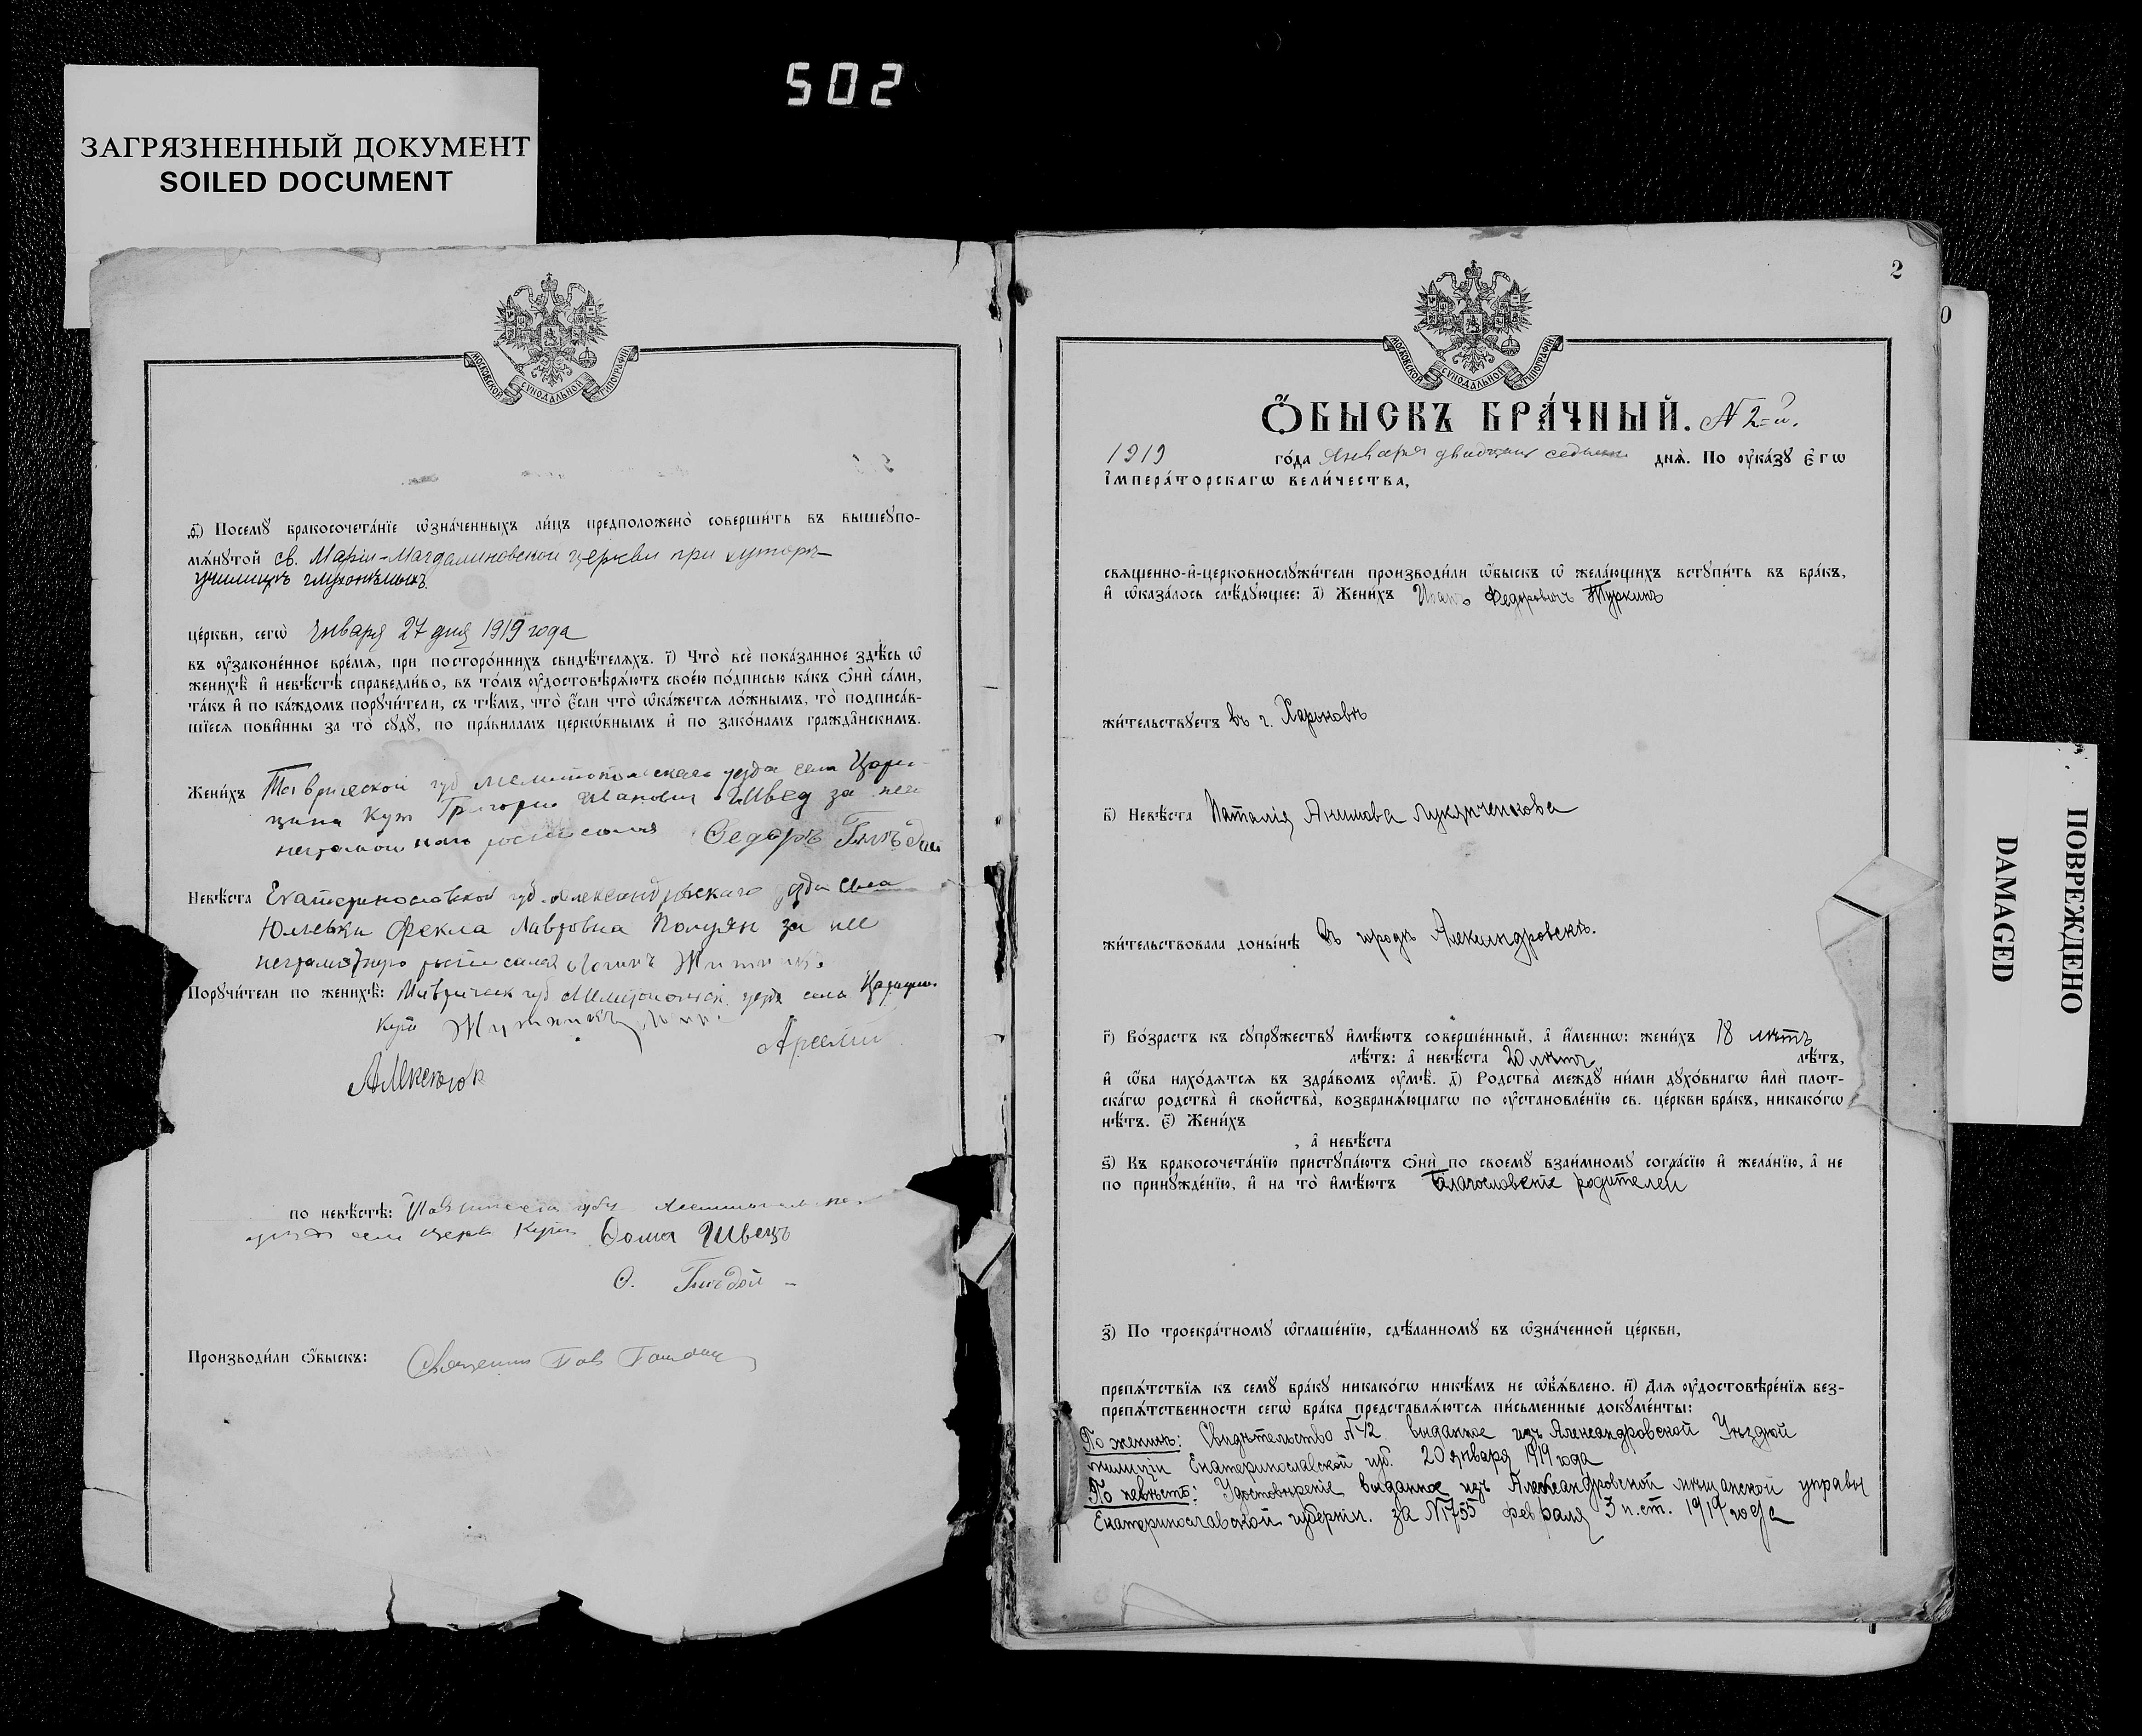 502
ЗАГРЯЗНЕННЫЙ ДОКУМЕНТ
SOILED DOCUMENT
МОСКОВСКОЙ СѴНОДАЛЬНОЙ ТИПОГРАФІИ
ѳ҃) Посемꙋ бракосочета́нїе ѡ҆зна́ченныхъ ли́цъ предположено̀ соверши́ть въ вышеꙋпо-
мѧ́нꙋтой св. Маріи-Магдалиновской церкви при хуторѣ
училищѣ глухонѣмыхъ
це́ркви, сегѡ̀ Января 27 дня 1919 года
въ ᲂу҆законе́нное вре́мѧ, при посторо́ннихъ свидѣ́телѧхъ. і҃) Что̀ всѐ пока́занное здѣ́сь ѡ҆
женихѣ̀ и҆ невѣ́стѣ справедли́во, въ то́мъ ᲂу҆достовѣрѧ́ютъ свое́ю по́дписью ка́къ ѻ҆нѝ са́ми,
та́къ и҆ по ка́ждомъ порꙋчи́тели, съ тѣ́мъ, что̀ є҆́сли что̀ ѡ҆ка́жетсѧ ло́жнымъ, то̀ подписа́в-
шїесѧ пови́нны за то̀ сꙋдꙋ̀, по пра́виламъ церко́внымъ и҆ по зако́намъ гражда́нскимъ.
Жени́хъ Таврической губ Мелитопольскаго уезда села Цари-
цина Кут Григорий Швед за него
неграмотнаго росписался Федоръ Гнѣдой
Невѣ́ста Екатеринославской губ. Александровскаго уезда села
Юльевки Фекла Лавровна за нее
неграмотную росписался Житникъ
Порꙋчи́тели по женихѣ̀: Таврическ губ Мелитопольск уезда села Царицин
Кута Житникъ
Арсений
Алексюк
по невѣ́стѣ: Таврической губ Мелитопольскаго
уезда села Кута Фома Швецъ
Ѳ. Гнѣдой
Производи́ли ѻ҆́быскъ: Священник Пав
2
МОСКОВСКОЙ СѴНОДАЛЬНОЙ ТИПОГРАФІИ
Ѻ҆́БЫСКЪ БРА́ЧНЫЙ. N 2-й.
1919 го́да Января двадцать седьмого днѧ̀. По ᲂу҆ка́зꙋ є҆гѡ̀
і҆мпера́торскагѡ вели́чества,
свѧще́нно-и҆-церковнослꙋжи́тели производи́ли ѡ҆́быскъ ѡ҆ жела́ющихъ встꙋпи́ть въ бра́къ,
и҆ ѡ҆каза́лось слѣ́дꙋющее: а҃) Жени́хъ Иванъ Федоровичъ Туркинъ
жи́тельствꙋетъ въ г. Харьковѣ
в҃) Невѣ́ста Наталія Акимова Лукянченкова
жи́тельствовала доны́нѣ въ городѣ Александровскѣ.
г҃) Во́зрастъ къ сꙋпрꙋ́жествꙋ и҆мѣ́ютъ соверше́нный, а҆ и҆́меннѡ: жени́хъ 18 лѣтъ
лѣ́тъ: а҆ невѣ́ста 20 лѣтъ лѣ́тъ,
и҆ ѡ҆́ба нахо́дѧтсѧ въ здра́вомъ ᲂу҆мѣ̀. д҃) Родства̀ междꙋ̀ ни́ми дꙋхо́внагѡ и҆лѝ плот-
ска́гѡ родства̀ и҆ сво́йства, возбранѧ́ющагѡ по ᲂу҆становле́нїю св. це́ркви бра́къ, никако́гѡ
нѣ́тъ. є҃) Жени́хъ
, а҆ невѣ́ста
ѕ҃) Къ бракосочета́нїю пристꙋпа́ютъ ѻ҆нѝ по своемꙋ̀ взаи́мномꙋ согла́сїю и҆ жела́нїю, а҆ не
по принꙋжде́нїю, и҆ на то̀ и҆мѣ́ютъ благословеніе родителей
з҃) По троекра́тномꙋ ѡ҆глаше́нїю, сдѣ́ланномꙋ въ ѡ҆зна́ченной це́ркви,
препѧ́тствїѧ къ семꙋ̀ бра́кꙋ никако́гѡ никѣ́мъ не ѡ҆бꙗ́влено. и҃) Длѧ ᲂу҆достовѣре́нїѧ без-
препѧ́тственности сегѡ̀ бра́ка представлѧ́ютсѧ пи́сьменные докꙋме́нты:
По женихѣ: Свидѣтельство N 42 выданное изъ Александровской Уѣздной
милиціи Екатеринославской губ. 20 января 1919 года
По невѣстѣ: Удостовѣреніе выданное изъ Александровской мѣщанской управы
Екатеринославской губерніи. за N 755 февраля 3 н.ст. 1919 года
0
ПОВРЕЖДЕНО
DAMAGED